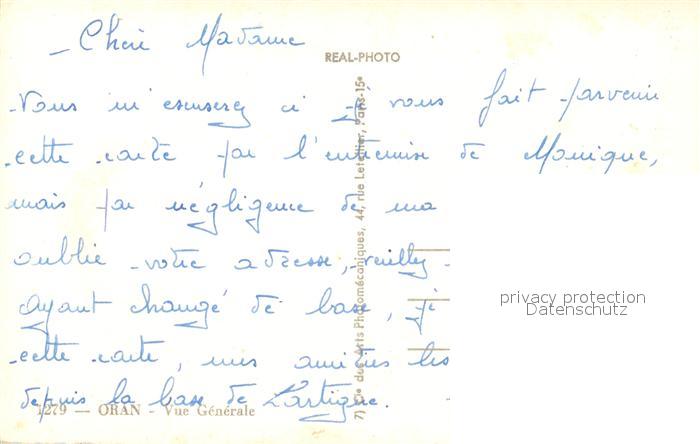 Cheri Madame
REAL-PHOTO
Vous m'excuserez si je vous fait parvenir
cette carte par l'entremise de Monique,
mais par négligence de ma
oublié votre adresse, veuillez
Ayant changé de base, je
cette carte, mes amitiés les
depuis la base de Lartigue.
1279 — ORAN - Vue Générale
7) Cie des Arts Photomécaniques, 44, rue Letellier, Paris-15e
privacy protection
Datenschutz